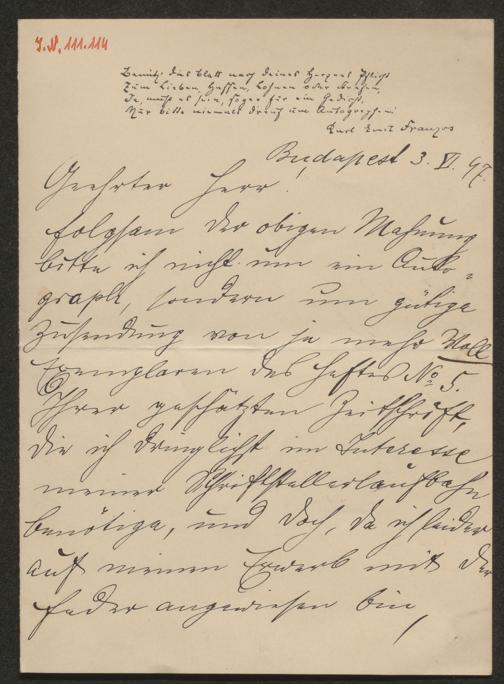 J.N. 111.114
Benütz' das Blatt nach Deines Herzens Pflicht
Zum Lieben, Hassen, Lohnen oder
Ja, muß es sein, sogar für ein Gedicht,
Nur bitte niemals drauf um Autographen!
Karl Emil Franzos
Budapest 3. VI. 97.
Geehrter Herr!
Folgsam der obigen Mahnung
bitte ich nicht um ein Auto-
graph, sondern um gütige
Zusendung von je mehr Voll
Exemplaren des Heftes No 5.
Ihrer geschätzten Zeitschrift,
die ich dringlichst im Interesse
meiner Schriftstellerlaufbahn
benötige, und doch, da ich leider
auf meinen Erwerb mit der
Feder angewiesen bin,